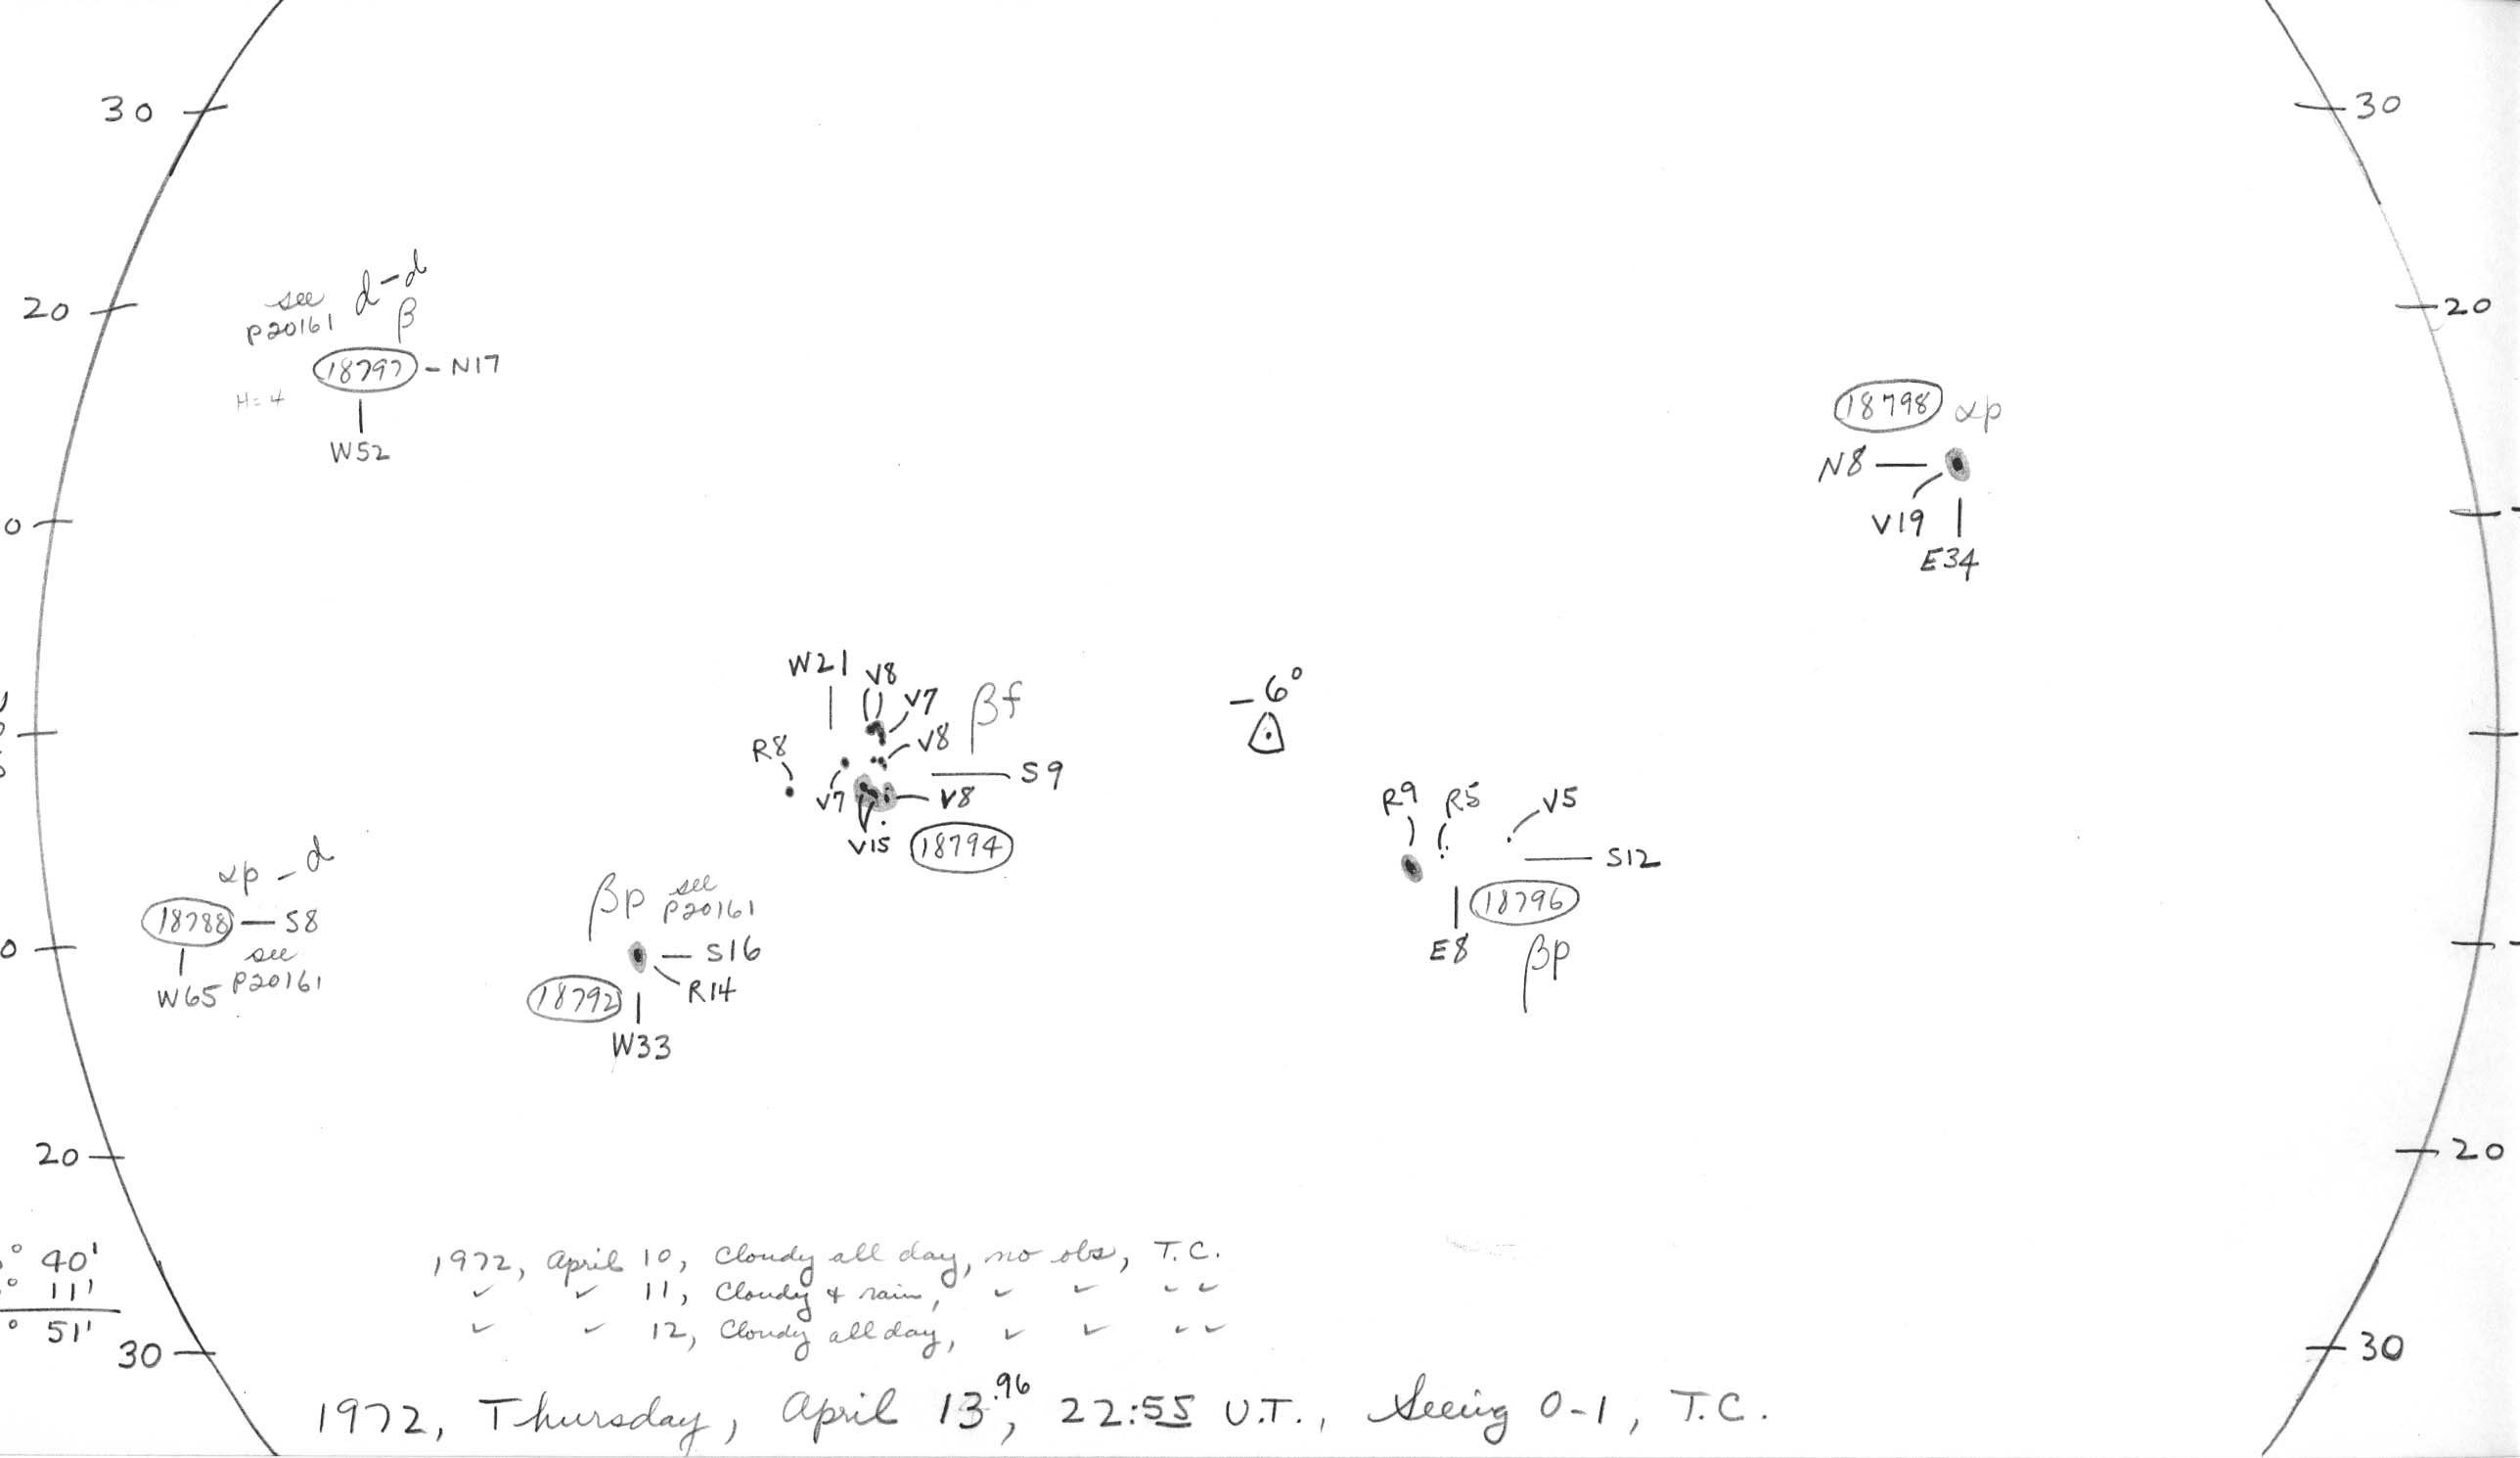 30
30
20
20
see d-d
P20161 β
18797 - N17
H=4
W52
18798 αp
N8
V19
E34
0
W21
V8
V7
βf
V8
R8
S9
V7
V8
V15
18794
-6°
R9
R5
V5
S12
18796
E8
βp
αp - d
18788 - S8
see
P20161
W65
βp see
P20161
S16
R14
18792
W33
0
20
20
° 40'
° 11'
° 51'
30
30
1972, April 10, Cloudy all day, no obs, T.C.
✓ ✓ 11, Cloudy & rain, ✓ ✓ ✓ ✓
✓ ✓ 12, Cloudy all day, ✓ ✓ ✓ ✓
1972, Thursday, April 13.96, 22:55 U.T., Seeing 0-1, T.C.